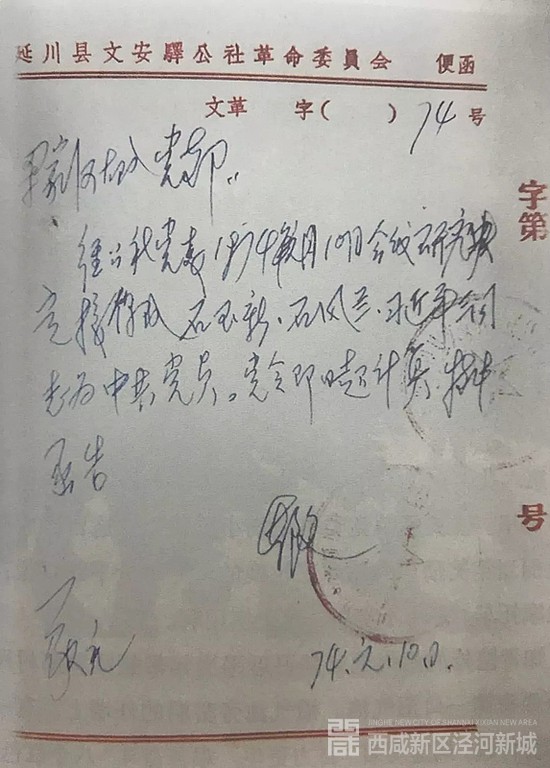 延川县文安驛公社革命委員会 便函
文革 字( ) 74 号
梁家河大队党支部:
经公社党委1974年元月10日会议研究决
定接收 石玉新、石凤兰、习近平三同
志为中共党员。党令即日起计算,特此
函告
字第
号
74.元.10日.
JINGHE NEW CITY OF SHAANXI XIXIAN NEW AREA
西咸新区泾河新城